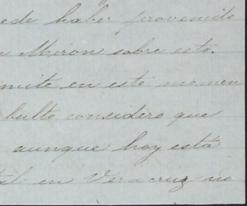 ede haber provenido
Miron sobre esto.
mite en este momen
bulto considero que
aunque hoy está
en Veracruz no